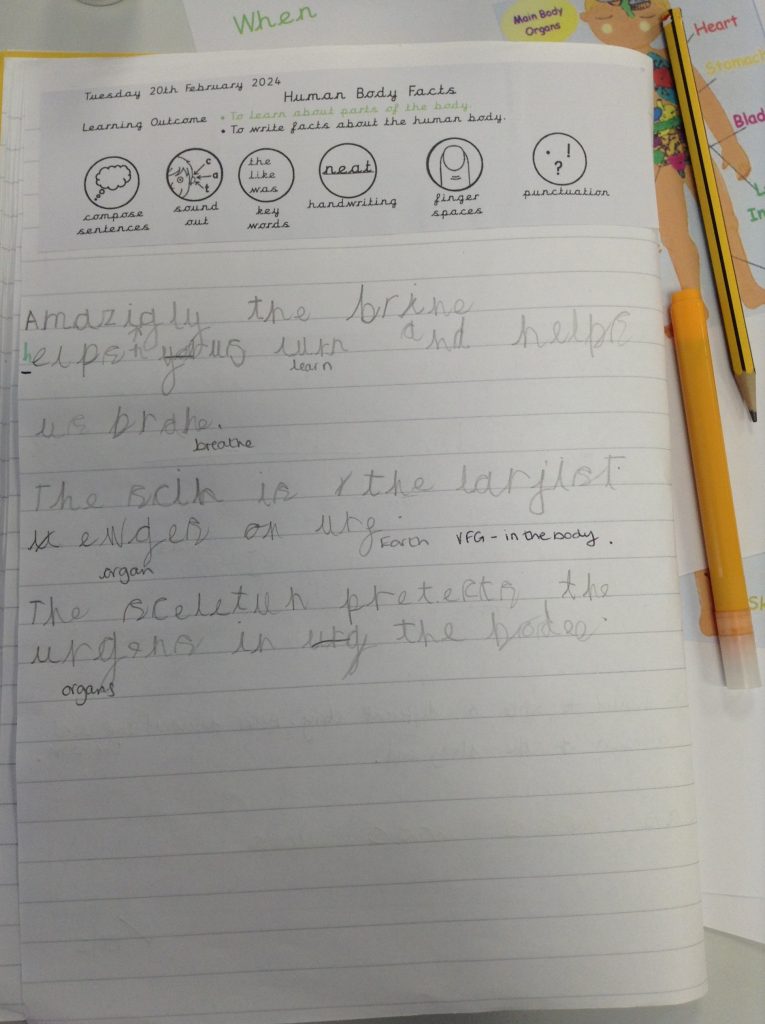 When
Main Body
Organs
Heart
Stomach
Tuesday 20th February 2024
Human Body Facts
Learning Outcome • To learn about parts of the body.
• To write facts about the human body.
c
a
t
the
like
was
neat
. !
?
compose
sentences
sound
out
key
words
handwriting
finger
spaces
punctuation
Amazigly the brine
helpes us lurn and helps
learn
us brahe.
breathe
The scin is the larjist
on urg
Earth VFG - in the body.
organ
The sceletun pretects the
urgens in the bodee.
organs